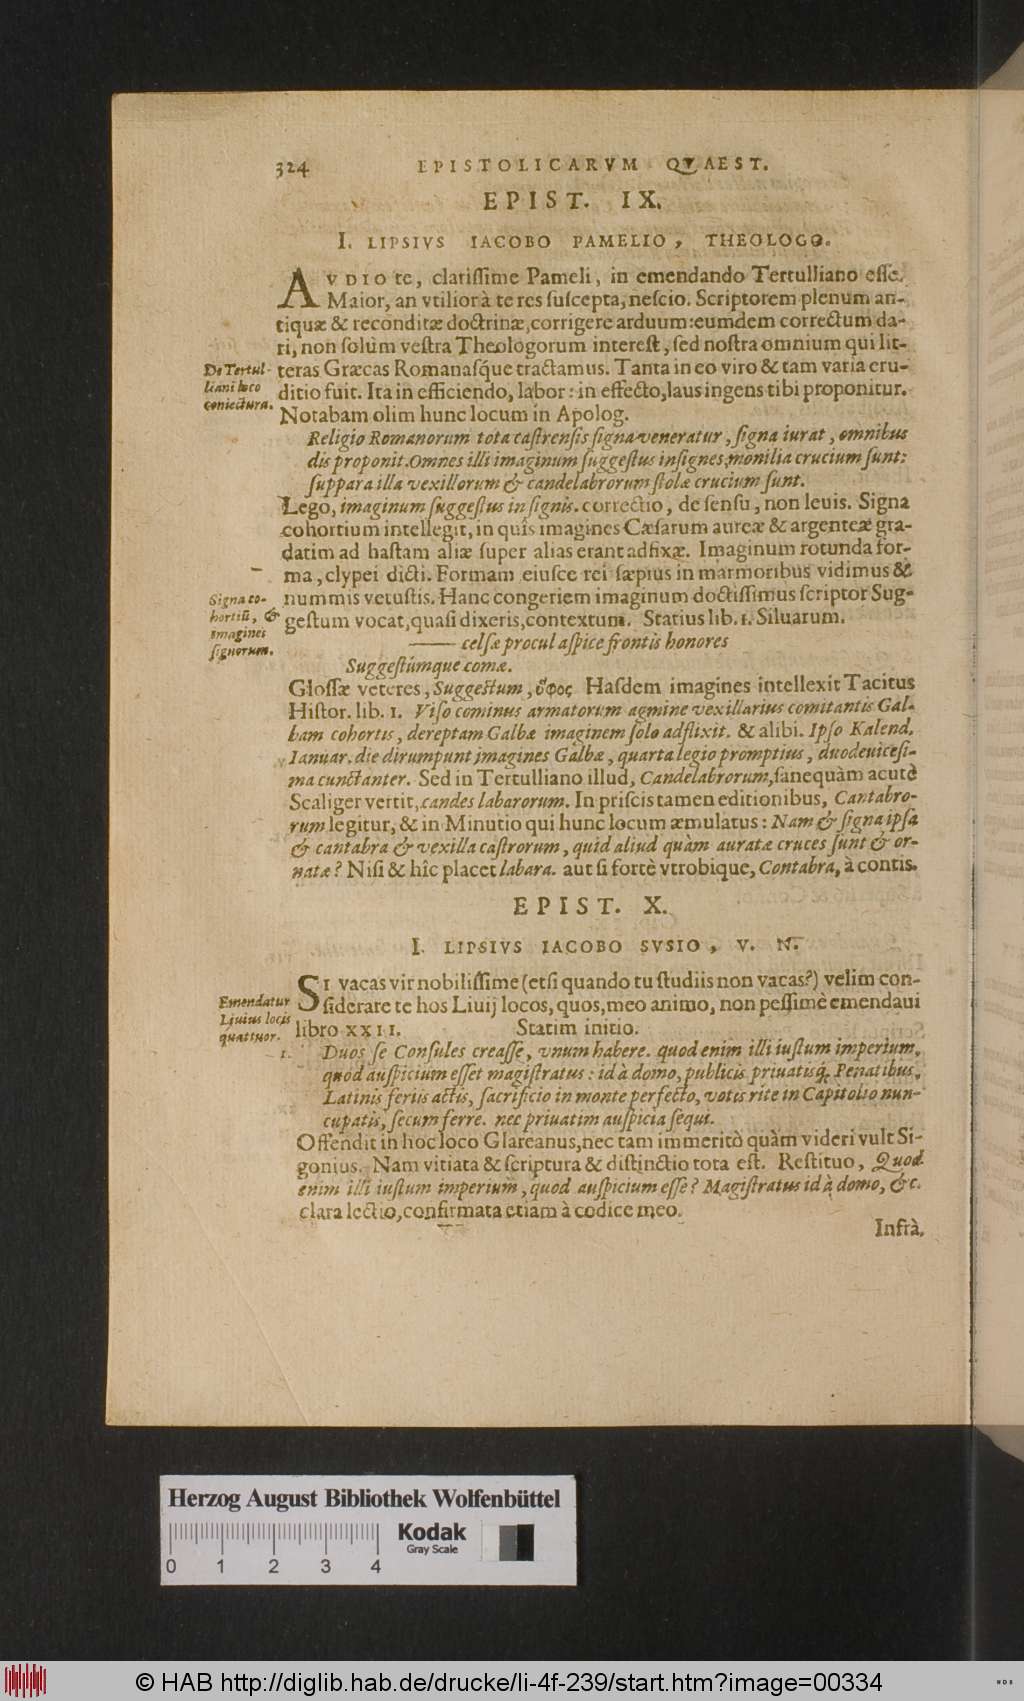 324 EPISTOLICARVM QVAEST.
EPIST. IX.
I. LIPSIVS IACOBO PAMELIO, THEOLOGO.
AVDIO te, clarissime Pameli, in emendando Tertulliano esse.
Maior, an vtilior à te res suscepta, nescio. Scriptorem plenum an-
tiquæ & reconditæ doctrinæ, corrigere arduum: eumdem correctum da-
ri, non solùm vestra Theologorum interest, sed nostra omnium qui lit-
teras Græcas Romanasq́ue tractamus. Tanta in eo viro & tam varia eru-
ditio fuit. Ita in efficiendo, labor: in effecto, laus ingens tibi proponitur.
Notabam olim hunc locum in Apolog.
De Tertul-
liani loco
coniectura.
Religio Romanorum tota castrensis signa veneratur, signa iurat, omnibus
dis proponit. Omnes illi imaginum suggestus insignes monilia crucium sunt:
suppara illa vexillorum & candelabrorum stolæ crucium sunt.
Lego, imaginum suggestus in signis. correctio, de sensu, non leuis. Signa
cohortium intellegit, in quîs imagines Cæsarum aureæ & argenteæ gra-
datim ad hastam aliæ super alias erant adfixæ. Imaginum rotunda for-
ma, clypei dicti. Formam eiusce rei sæpius in marmoribus vidimus &
nummis vetustis. Hanc congeriem imaginum doctissimus scriptor Sug-
gestum vocat, quasi dixeris, contextum. Statius lib. 1. Siluarum.
Signa co-
hortiũ, &
imagines
signorum.
—— celsæ procul aspice frontis honores
Suggestúmque comæ.
Glossæ veteres, Suggestum, ὕφος. Hasdem imagines intellexit Tacitus
Histor. lib. 1. Viso cominus armatorum agmine vexillarius comitantis Gal-
bam cohortis, dereptam Galbæ imaginem solo adflixit. & alibi. Ipso Kalend.
Ianuar. die dirumpunt imagines Galbæ, quarta legio promptius, duodeuicesi-
ma cunctanter. Sed in Tertulliano illud, Candelabrorum, sanequàm acutè
Scaliger vertit, candes labarorum. In priscis tamen editionibus, Cantabro-
rum legitur, & in Minutio qui hunc locum æmulatus: Nam & signa ipsa
& cantabra & vexilla castrorum, quid aliud quàm auratæ cruces sunt & or-
natæ? Nisi & hîc placet labara. aut si fortè vtrobique, Contabra, à contis.
EPIST. X.
I. LIPSIVS IACOBO SVSIO, V. N.
SI vacas vir nobilissime (etsi quando tu studiis non vacas?) velim con-
siderare te hos Liuij locos, quos, meo animo, non pessimè emendaui
libro XXII. Statim initio.
Emendatur
Liuius locis
quattuor.
1.
Duos se Consules creasse, vnum habere. quod enim illi iustum imperium,
quod auspicium esset magistratus: id à domo, publicis priuatisq́; Penatibus,
Latinis feriis actis, sacrificio in monte perfecto, votis rite in Capitolio nun-
cupatis, secum ferre. nec priuatim auspicia sequi.
Offendit in hoc loco Glareanus, nec tam immeritò quàm videri vult Si-
gonius. Nam vitiata & scriptura & distinctio tota est. Restituo, Quod
enim illi iustum imperium, quod auspicium esse? Magistratus id à domo, &c.
clara lectio, confirmata etiam à codice meo.
Infrà,
Herzog August Bibliothek Wolfenbüttel
Kodak
Gray Scale
0 1 2 3 4
© HAB http://diglib.hab.de/drucke/li-4f-239/start.htm?image=00334